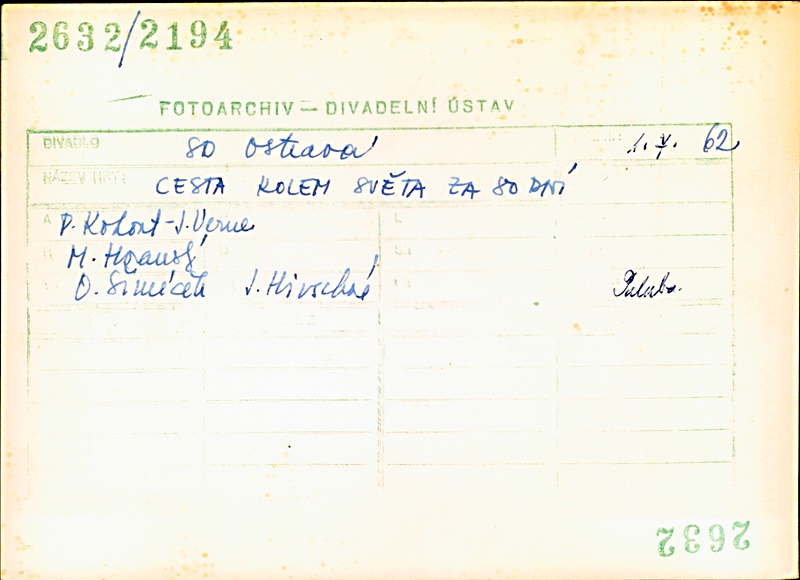 2632/2194
FOTOARCHIV — DIVADELNÍ ÚSTAV
DIVADLO SD Ostrava 1. V. 62
NÁZEV HRY: CESTA KOLEM SVĚTA ZA 80 DNÍ
A P. Kohout - J. Verne L
M. Hranský
O. Šimáček J. Hirschová
2632